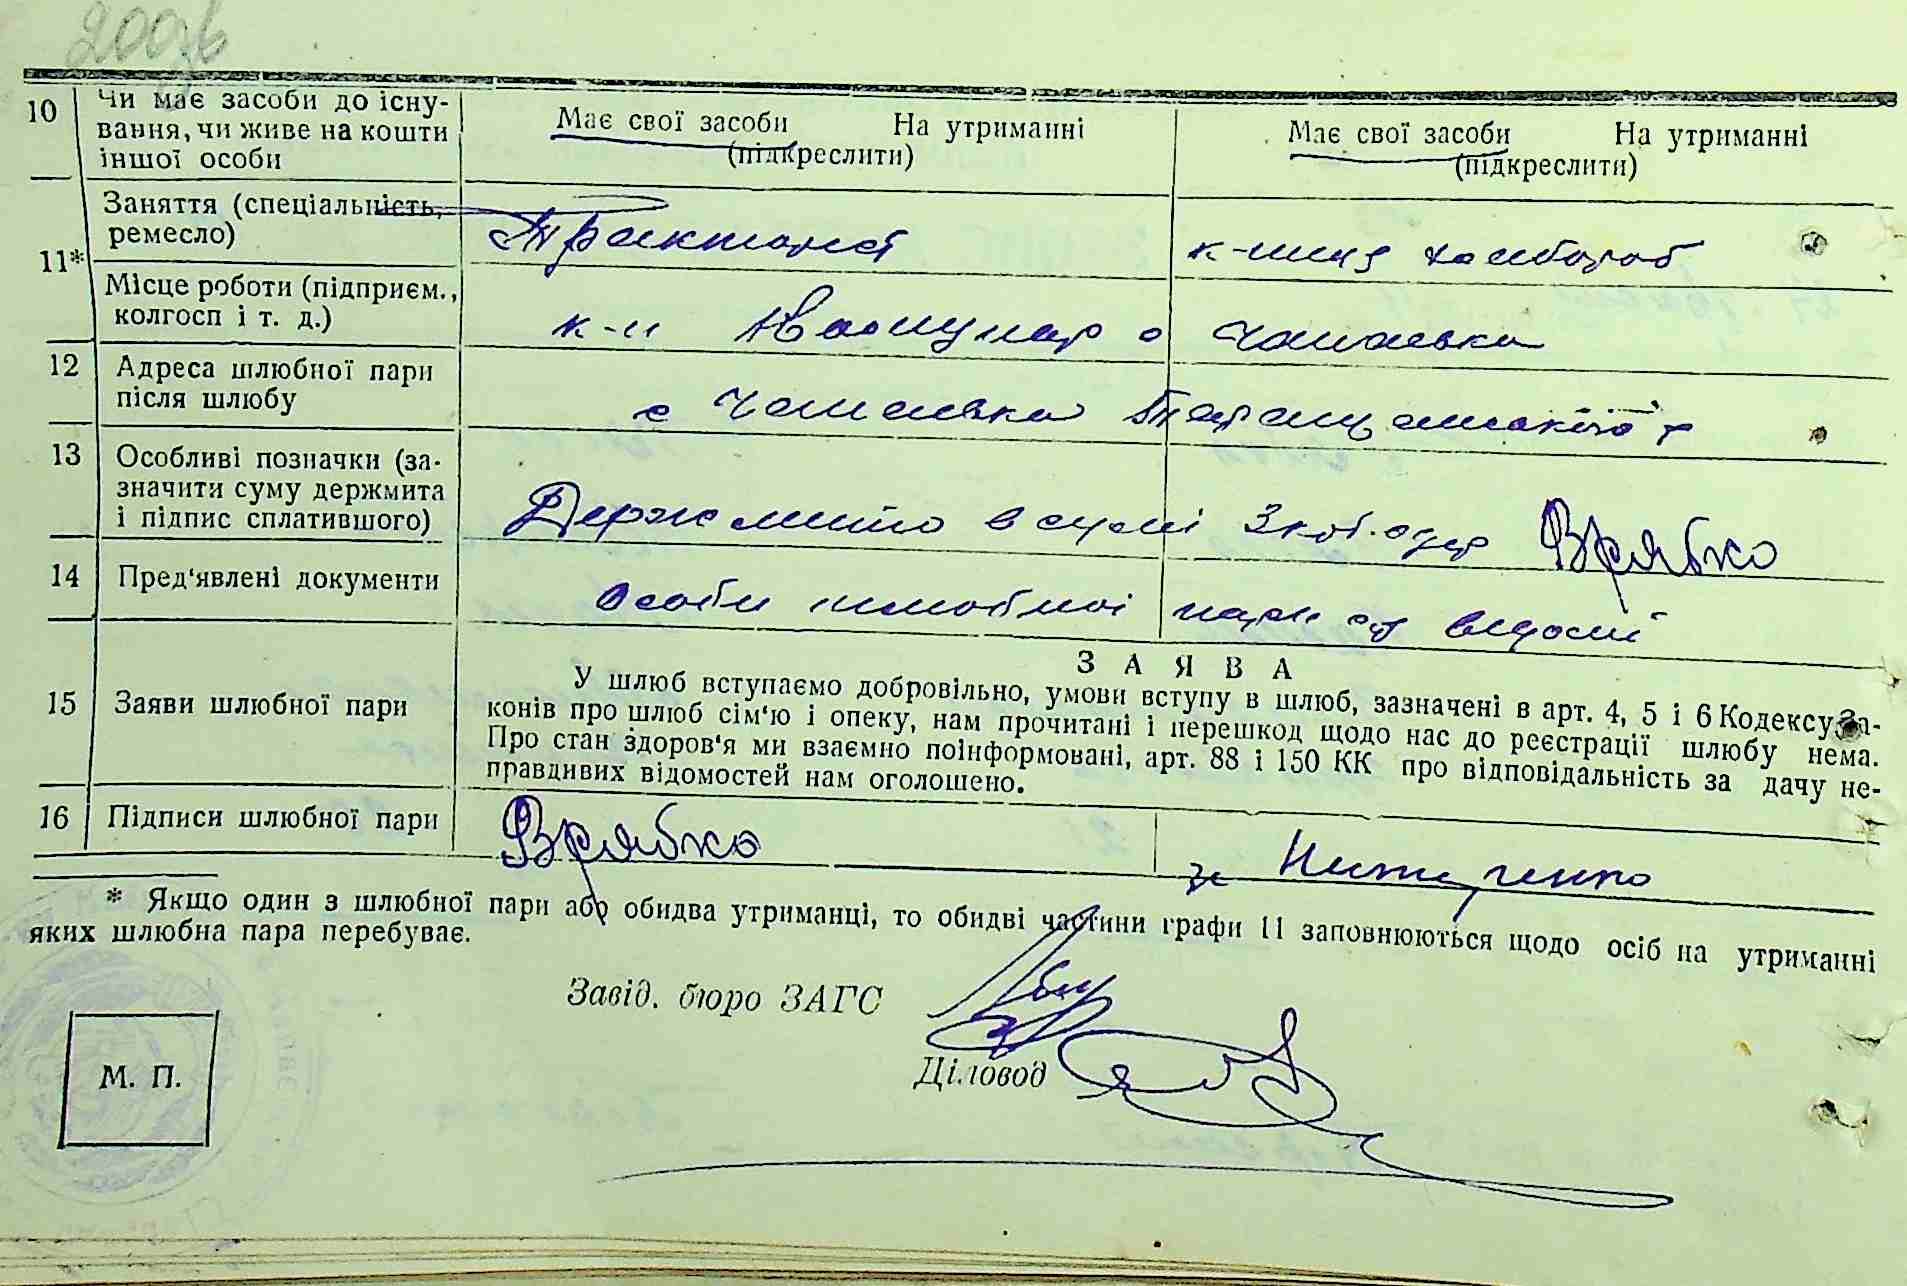 200зв
10 Чи має засоби до існу-
вання, чи живе на кошти
іншої особи
Має свої засоби На утриманні
(підкреслити)
Має свої засоби На утриманні
(підкреслити)
11*
Заняття (спеціальність,
ремесло)
Тракторист
к-ниця
Місце роботи (підприєм.,
колгосп і т. д.)
к-п с Чапаєвка
12 Адреса шлюбної пари
після шлюбу
с Чапаєвка Таращанський р
13 Особливі позначки (за-
значити суму держмита
і підпис сплатившого)
Держмито в сумі 3 крб. одер ВРябко
14 Пред‘явлені документи
Особи шлюбної пари
15 Заяви шлюбної пари
ЗАЯВА
У шлюб вступаємо добровільно, умови вступу в шлюб, зазначені в арт. 4, 5 і 6 Кодексу За-
конів про шлюб сім‘ю і опеку, нам прочитані і перешкод щодо нас до реєстрації шлюбу нема.
Про стан здоров‘я ми взаємно поінформовані, арт. 88 і 150 КК про відповідальність за дачу не-
правдивих відомостей нам оголошено.
16 Підписи шлюбної пари
ВРябко
* Якщо один з шлюбної пари або обидва утриманці, то обидві частини графи 11 заповнюються щодо осіб на утриманні
яких шлюбна пара перебуває.
Завід. бюро ЗАГС
Діловод
М. П.